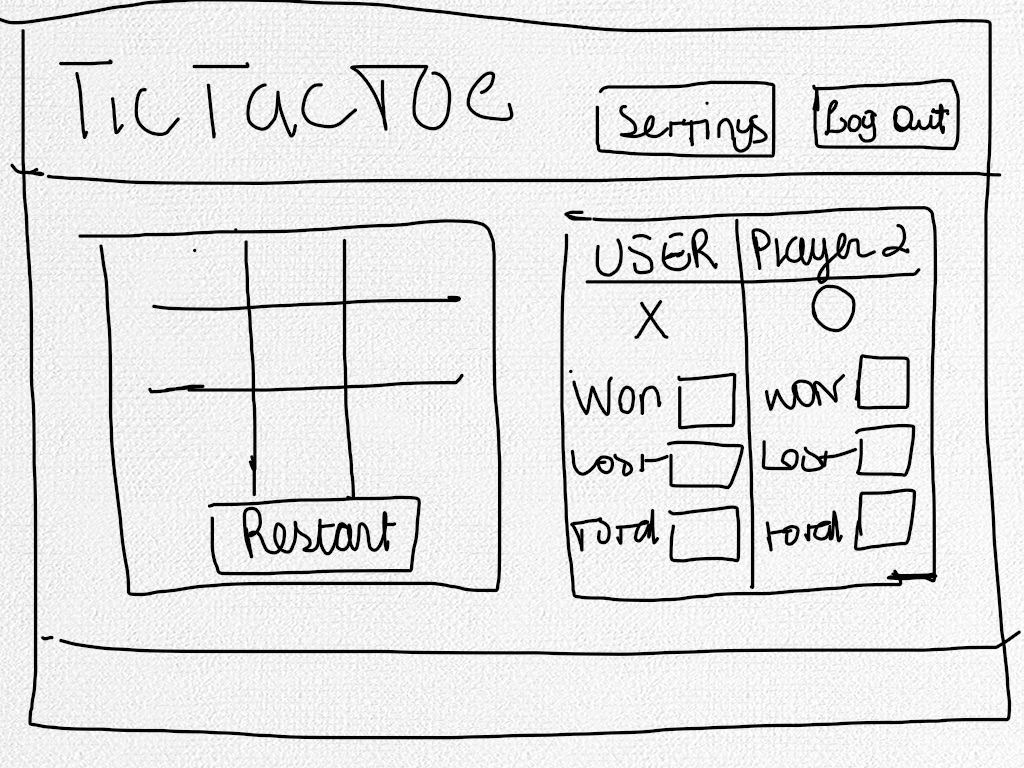 TicTacToe
Settings
Log Out
Restart
USER
Player 2
X
O
Won
won
Lost
Lost
Total
total